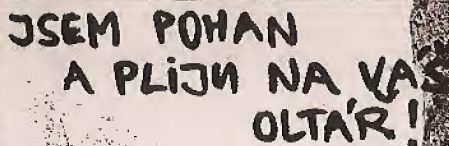 JSEM POHAN
A PLIJU NA VAŠ
OLTÁR!